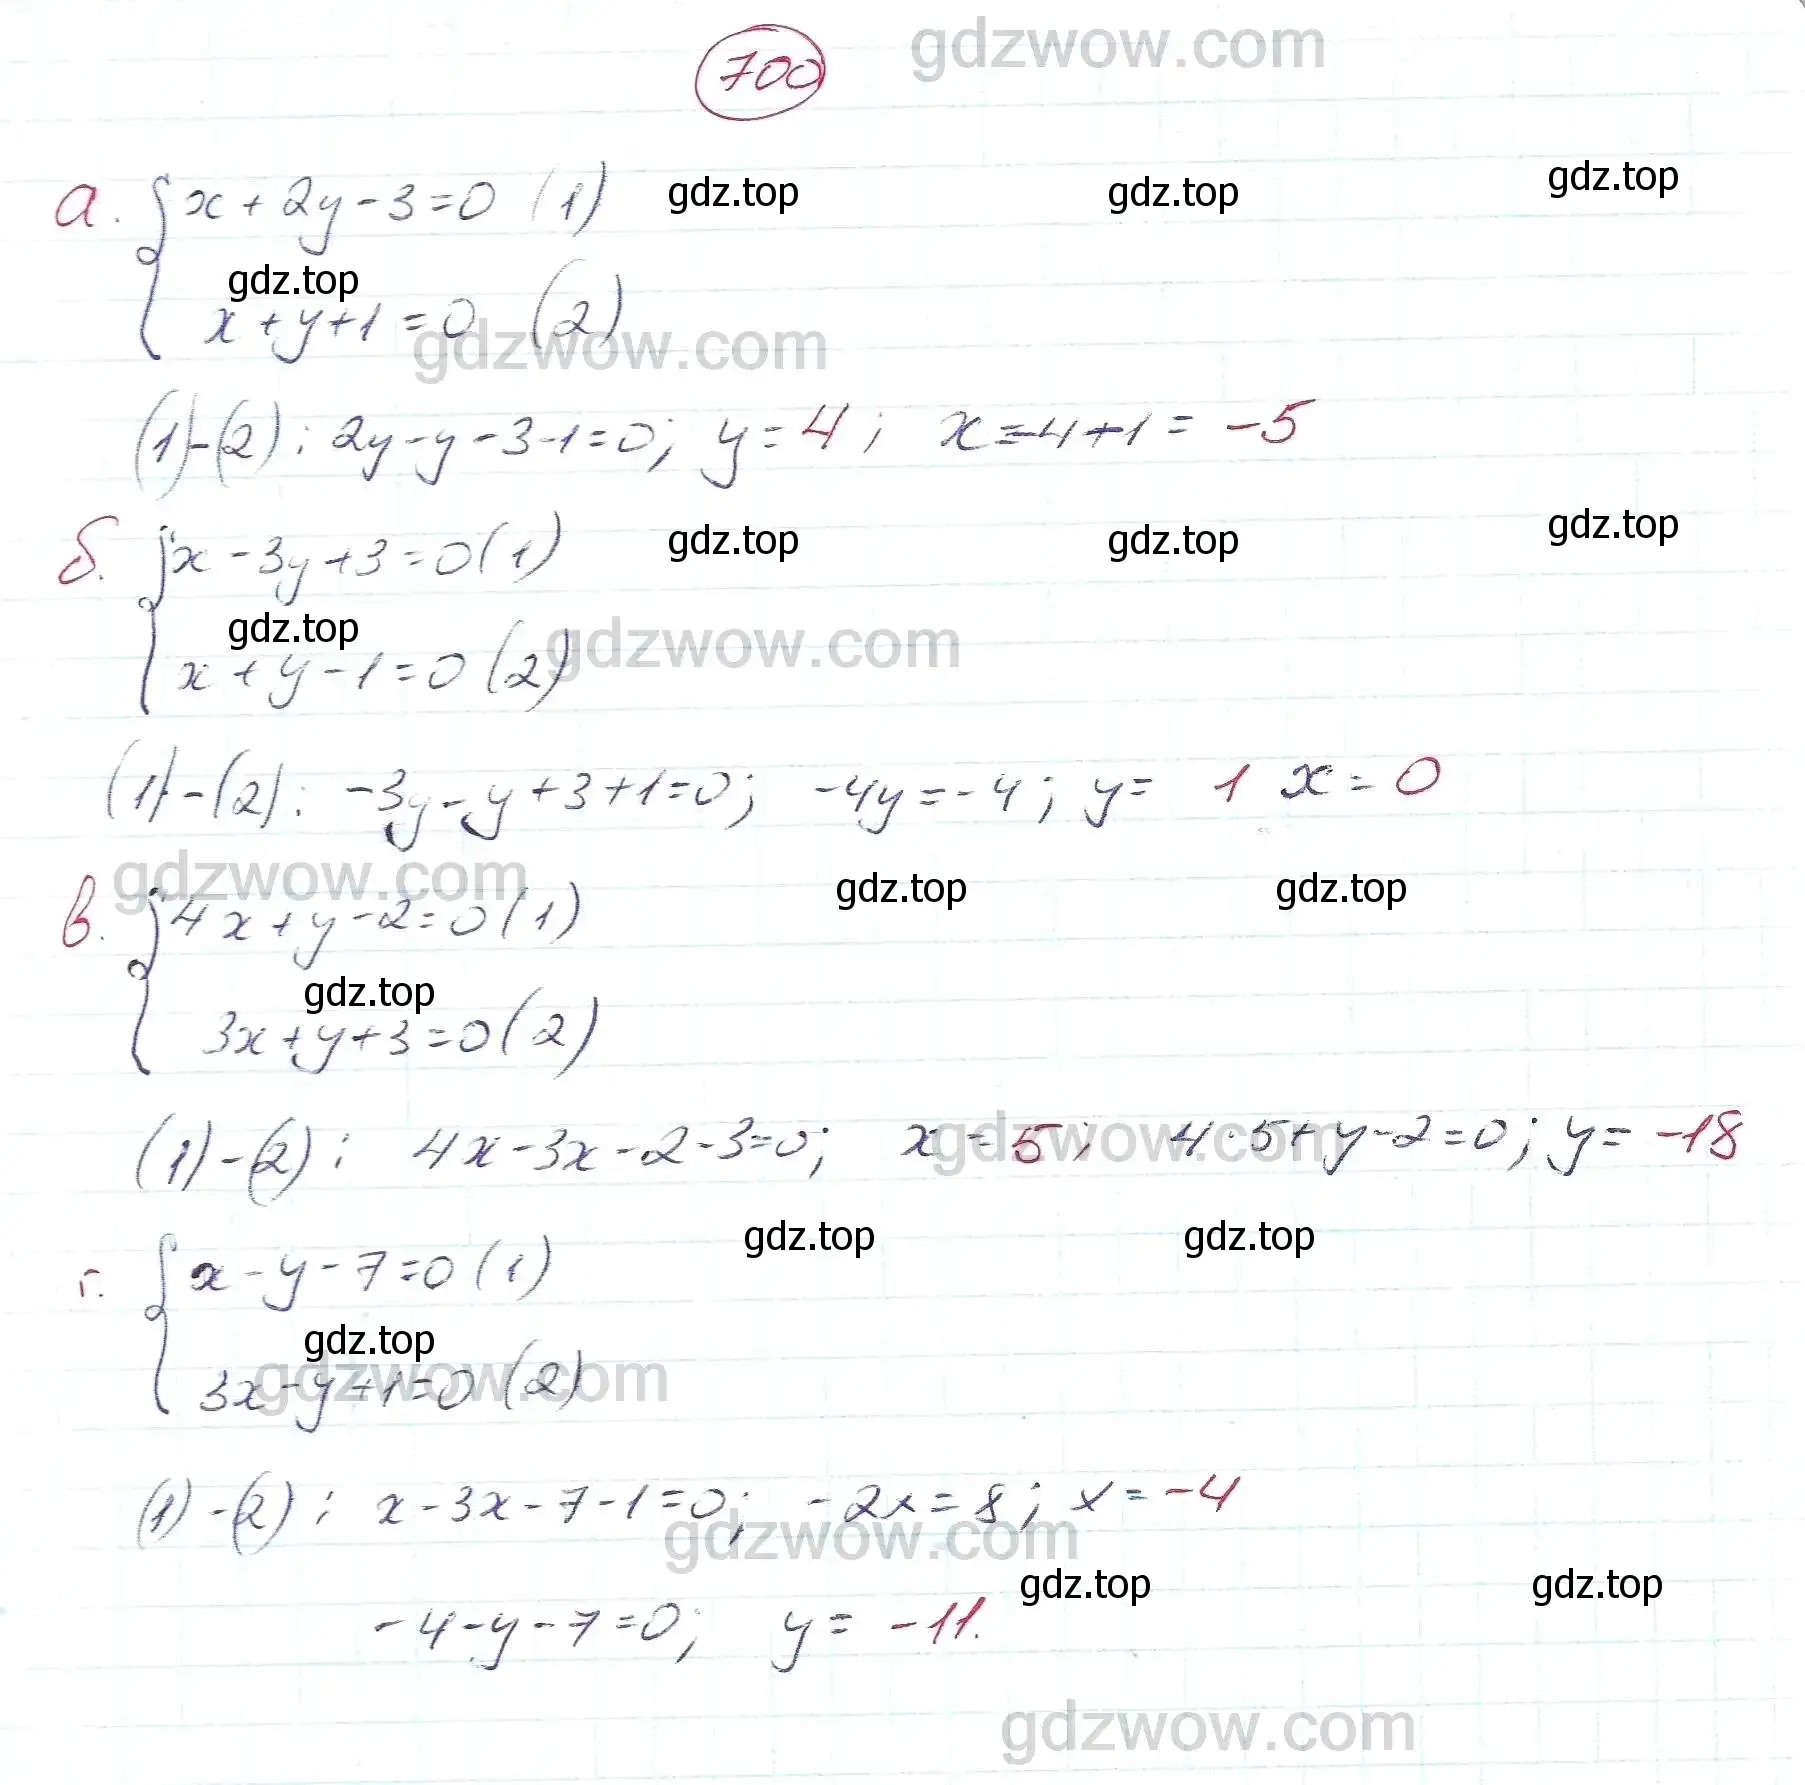 700
gdzwow.com
а. { x + 2y - 3 = 0 (1)
gdz.top gdz.top gdz.top
gdz.top
x + y + 1 = 0 (2)
gdzwow.com
(1) - (2) : 2y - y - 3 - 1 = 0; y = 4; x = -4 + 1 = -5
б. { x - 3y + 3 = 0 (1)
gdz.top gdz.top gdz.top
gdz.top
x + y - 1 = 0 (2)
gdzwow.com
(1) - (2) : -3y - y + 3 + 1 = 0; -4y = -4; y = 1 x = 0
gdzwow.com
gdz.top gdz.top
в. { 4x + y - 2 = 0 (1)
gdz.top
3x + y + 3 = 0 (2)
(1) - (2) : 4x - 3x - 2 - 3 = 0; x = 5; 4 · 5 + y - 2 = 0; y = -18
gdzwow.com
gdz.top gdz.top
г. { x - y - 7 = 0 (1)
gdz.top
3x - y + 1 = 0 (2)
gdzwow.com
(1) - (2) : x - 3x - 7 - 1 = 0; -2x = 8; x = -4
gdzwow.com
gdz.top gdz.top
-4 - y - 7 = 0; y = -11.
gdzwow.com